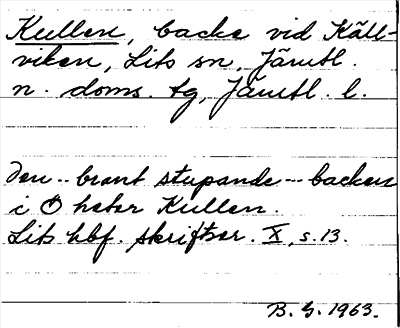 Kullen, backe vid Käll-
viken, Lits sn, Jämtl.
n. doms. tg, Jämtl. l.
Den -- brant stupande -- backen
i Ö heter Kullen.
Lits hbf. skriftser. X, s. 13.
B. G. 1963.